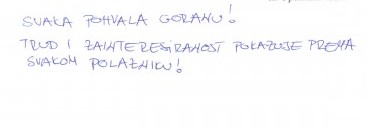 SVAKA POHVALA GORANU!
TRUD I ZAINTERESIRANOST POKAZUJE PREMA
SVAKOM POLAZNIKU!